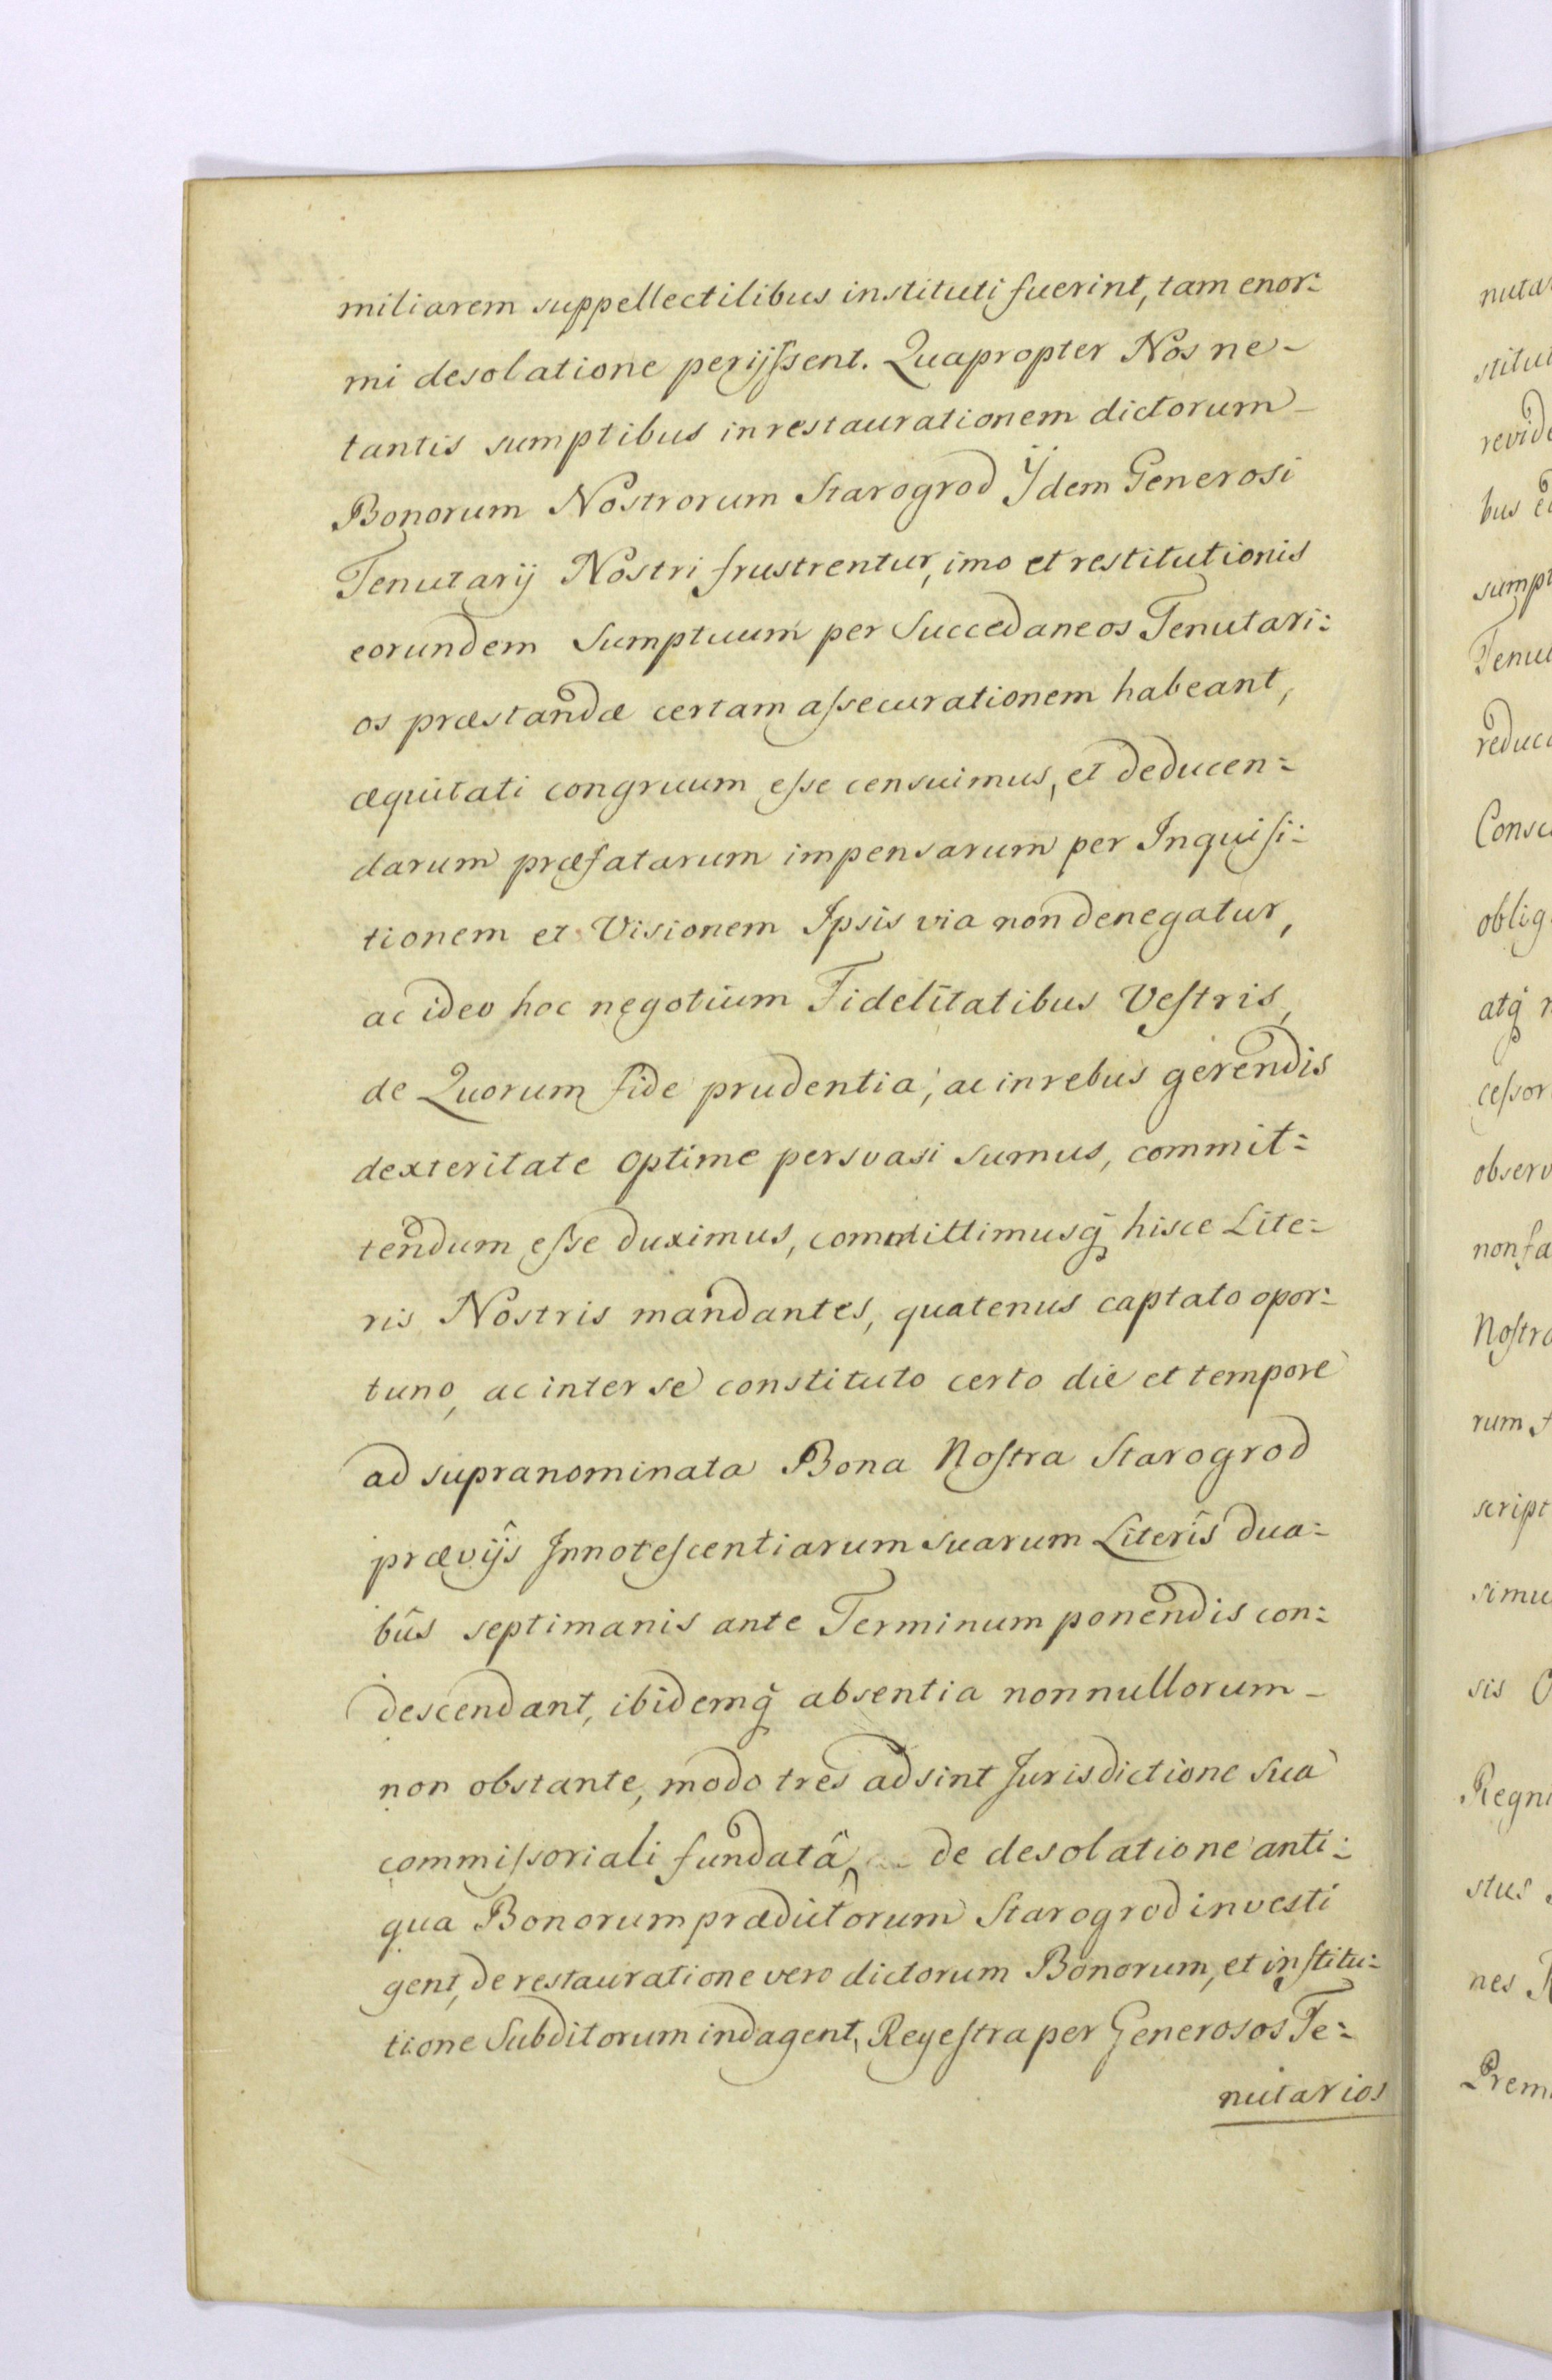 miliarem suppellectilibus instituti fuerint, tam enor:
mi desolatione perijſsent. Quapropter Nos ne-
tantis sumptibus in restaurationem dictorum-
Bonorum Nostrorum Starogrod Ijdem Generosi
Tenutarij Nostri frustrentur, imo et restitutionis
eorundem Sumptuum per Succedaneos Tenutari:
os præstandæ certam aſsecurationem habeant,
æquitati congruum eſse censuimus, et deducen=
darum præfatarum impensarum per Inquiſi:
tionem et Visionem Ipsis via non denegatur,
ac ideo hoc negotium Fidelitatibus Veſtris,
de Quorum fide prudentia, ac in rebus gerendis
dexteritate optime persvasi sumus, commit=
tendum eſse duximus, committimusq̃ hisce Lite=
ris Nostris mandantes, quatenus captato opor:
tuno, ac inter se constituto certo die et tempore
ad supranominata Bona Noſtra Starogrod
prævijs Innoteſcentiarum suarum Literis dua=
bûs septimanis ante Terminum ponendis con:
descendant, ibidemq̃ absentia nonnullorum-
non obstante, modo tres adsint Jurisdictione Sua
commiſsoriali fundatâ, de desolatione anti:
qua Bonorum prædictorum Starogrod investi
gent, de restauratione vero dictorum Bonorum, et inſtitu=
tione Subditorum indagent, Regeſtra per Generosos Te=
nutarios
nuta
stitut
revide
bus
sump
Tenu
reduc
Cons
oblig
atq̃
ceſsor
observ
non fa
Noſtr
rum
script
simu
sis
Regni
stus
nes
Prem